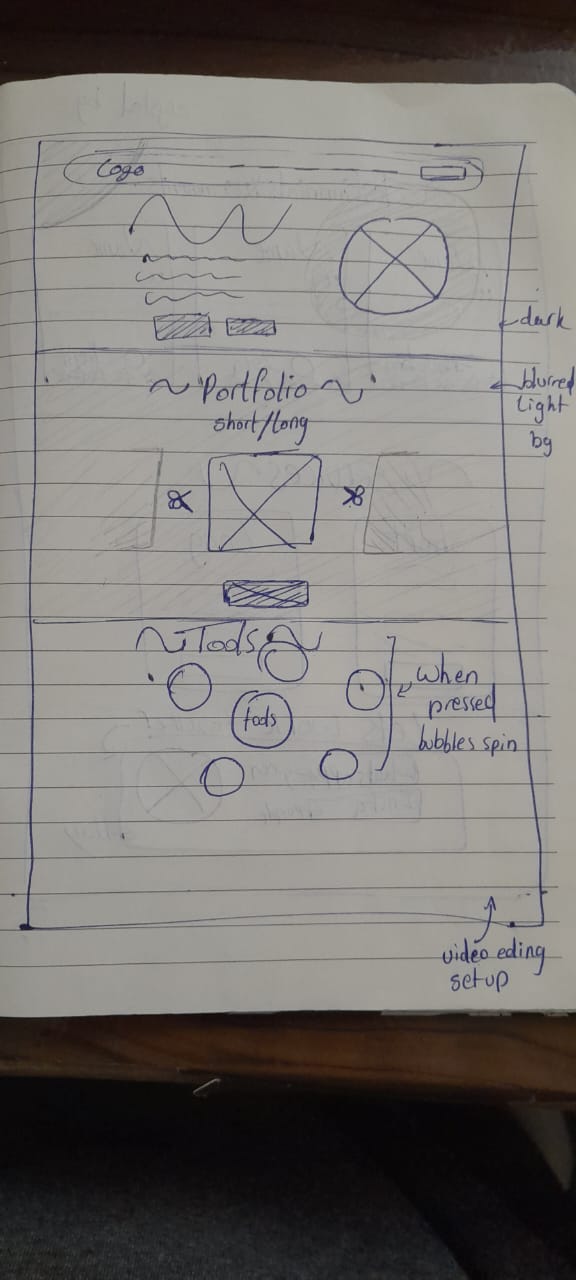 Logo
dark
Portfolio
short/long
blurred
light
bg
Tools
tools
when
pressed
bubbles spin
video eding
setup